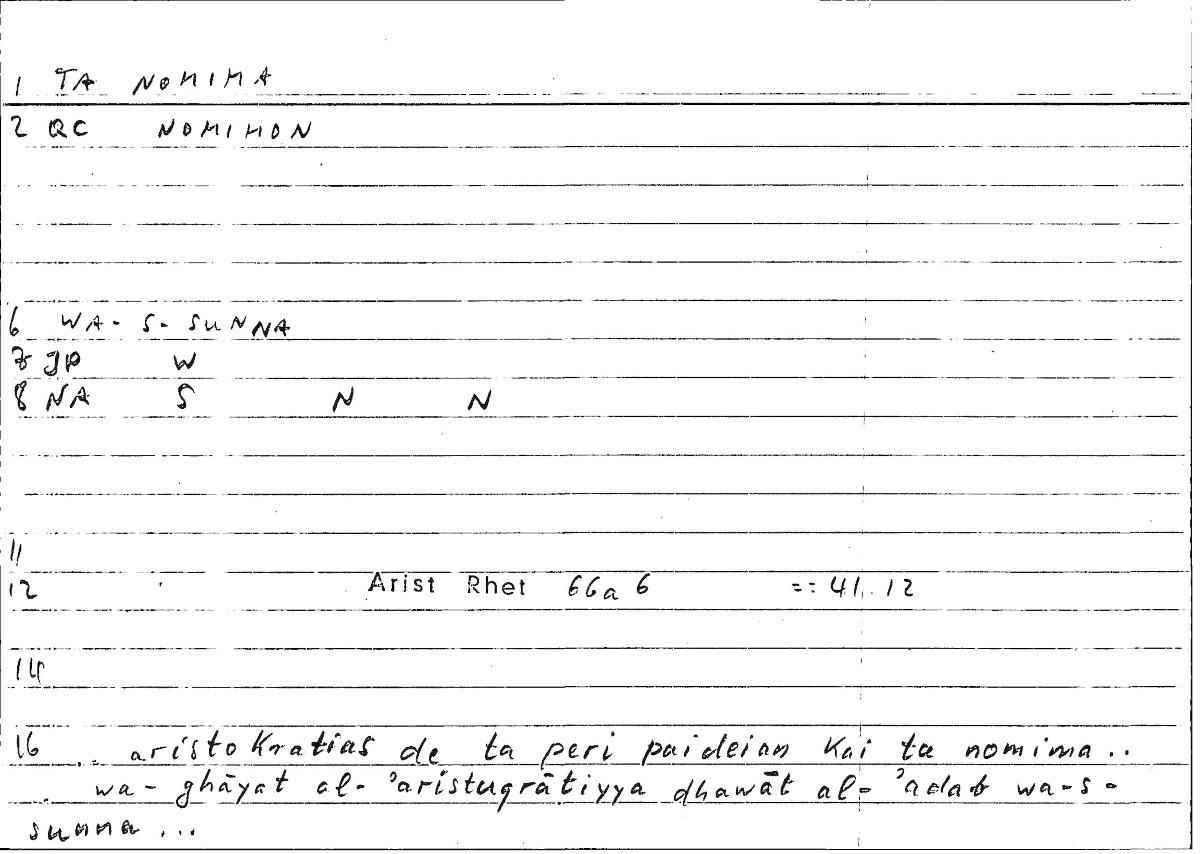 1 TA NOMIMA
2 QC NOMIMON
6 WA- S- SUNNA
7 JP W
8 NA S N N
11
12 Arist Rhet 66a 6 =: 41. 12
14
16 .. aristokratias de ta peri paideian kai ta nomima..
wa- ghāyat al- ʾaristuqrātiyya dhawāt al- ʾadab wa-s-
sunna ...